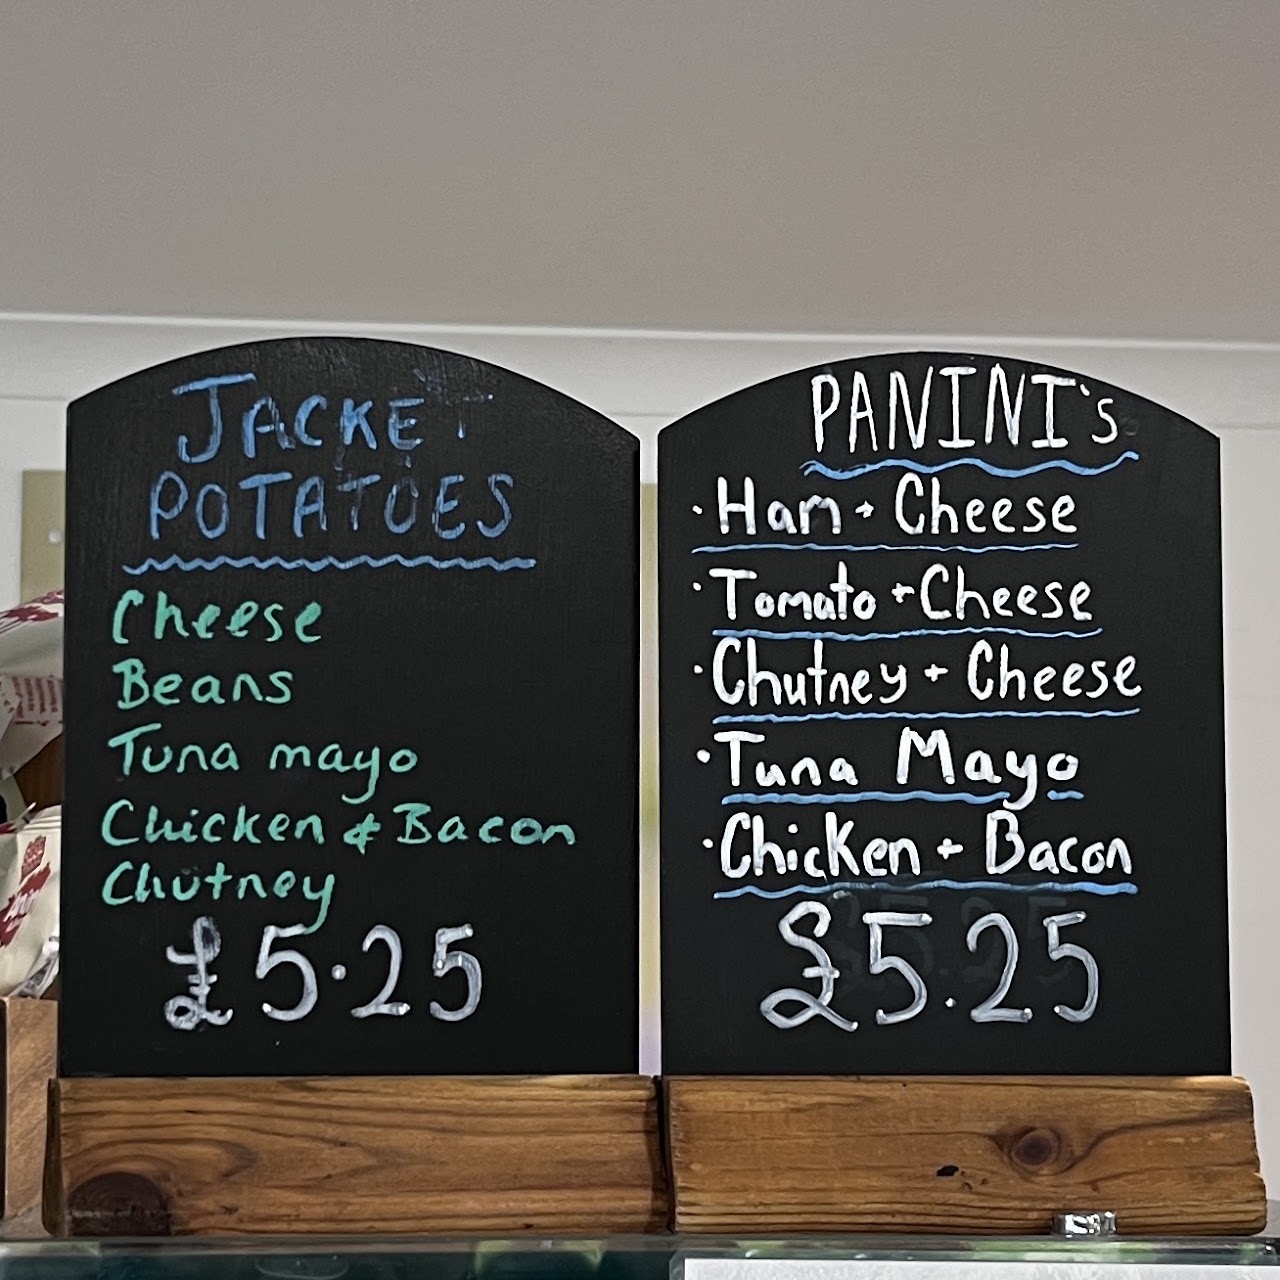 JACKET
POTATOES
Cheese
Beans
Tuna mayo
Chicken & Bacon
Chutney
£5.25
PANINI's
·Ham + Cheese
·Tomato + Cheese
·Chutney + Cheese
·Tuna Mayo
·Chicken + Bacon
£5.25